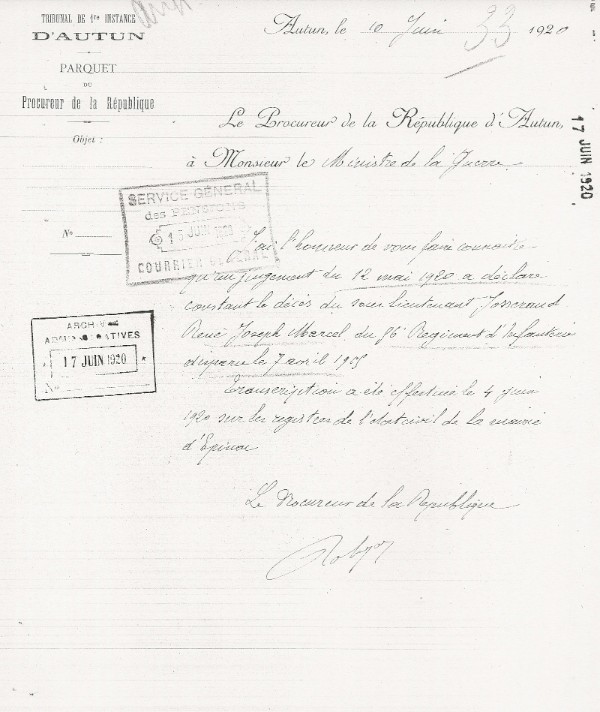 TRIBUNAL DE 1re INSTANCE
D'AUTUN
PARQUET
DU
Procureur de la République
Objet :
Autun, le 10 Juin 1920
33
Le Procureur de la République d'Autun,
à Monsieur le Ministre de la Guerre
17 JUIN 1920
SERVICE GÉNÉRAL
des PENSIONS
15 JUIN 1920
COURRIER GÉNÉRAL
No
J'ai l'honneur de vous faire connaître
qu'un jugement du 12 mai 1920 a déclaré
constant le décès du sous Lieutenant Josserand
René Joseph Marcel du 56e Régiment d'Infanterie
disparu le 7 avril 1915
ARCHIVES
ADMINISTRATIVES
17 JUIN 1920
No
Transcription a été effectuée le 4 juin
1920 sur les registres de l'état civil de la mairie
d'Epinac
Le Procureur de la République